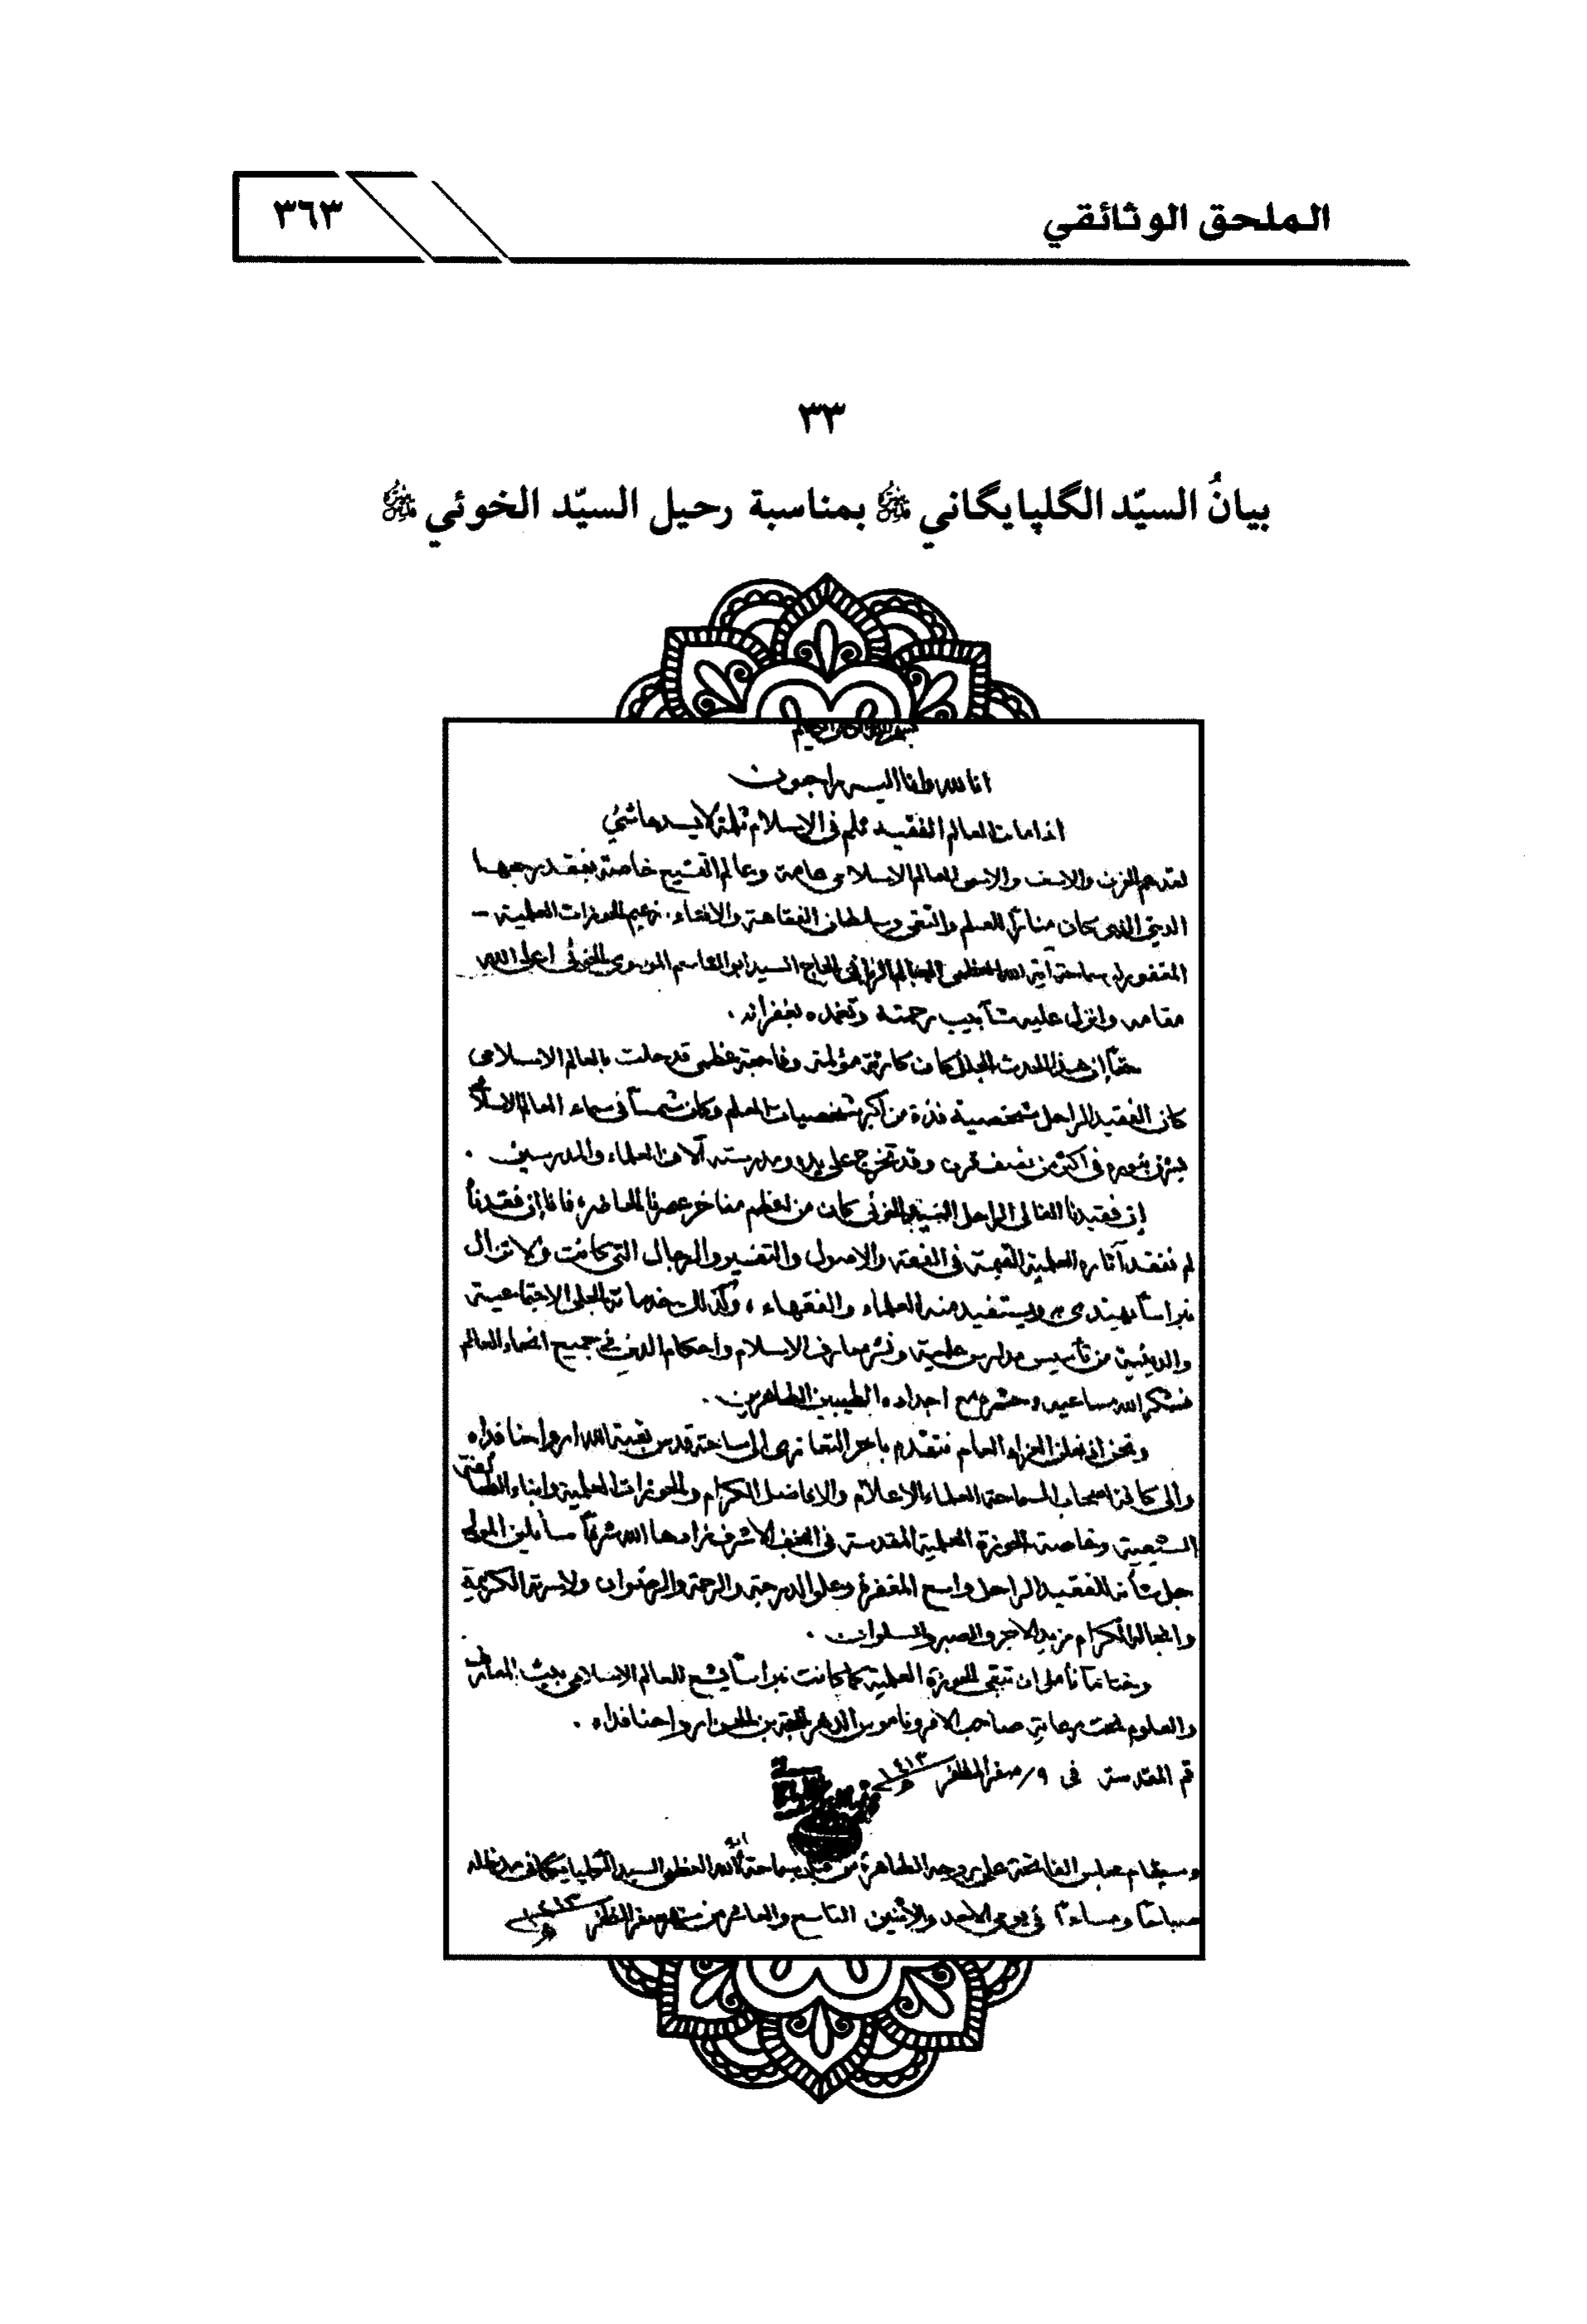 الملحق الوثائقي
٣٦٣
٣٣
بيانُ السيّد الگلپايگاني بمناسبة رحيل السيّد الخوئي
بسم الله الرحمن الرحيم
انا لله وانا اليه راجعون
اذا مات العالم الفقيه ثلم فى الإسلام ثلمة لا يسدها شئ
لقد عم الحزن والاسف والاسى العالم الاسلامى عامة وعالم التشيع خاصة بفقد مرجعها
الدينى الذى كان مناراً للعلم والتقى وسلطان الفقاهة والافتاء، زعيم الحوزات العلمية -
المغفور له سماحة آية الله العظمى الحاج السيد ابو القاسم الموسوى الخوئى اعلى الله
مقامه وانزل عليه شآبيب رحمته وتغمده بغفرانه .
حقاً إن هذا الحدث الجلل كان كارثة مؤلمة وفاجعة عظمى قد حلت بالعالم الاسلامى
كان الفقيد الراحل شخصية فذة من اكبر شخصيات العلم وكان شمساً فى سماء العالم الاسلامى
يشرق بنوره فى اكثر من نصف قرن وقد تخرج على يده ومدرسته آلاف العلماء والمدرسين .
إن فقيدنا الغالى الراحل السيد الخوئى كان من اعظم مفاخر عصرنا الحاضر، فانا إن فقدناه
لم نفقد آثاره العلمية القيمة فى الفقه والاصول والتفسير والرجال التى كانت ولا تزال
نبراساً يهتدى به ويستفيد منه العلماء والفقهاء ، وكذلك خدماته الجلى الاجتماعية
والدينية من تأسيس مدارس علمية ونشر معارف الاسلام واحكام الدين فى جميع انحاء العالم
فشكر الله مساعيه وحشره مع اجداده الطيبين الطاهرين .
ونحن اذ نعلن العزاء العام نتقدم باحر التعازى الى ساحة قدس بقية الله ارواحنا فداه
والى كافة اصحاب السماحة العلماء الاعلام والافاضل الكرام والحوزات العلمية وابناء الطائفة
الشيعية وخاصة الحوزة العلمية المقدسة فى النجف الاشرف زادها الله شرفاً سائلين المولى
جل شأنه للفقيد الراحل واسع المغفرة وعلو الدرجة والرحمة والرضوان ولاسرته الكريمة
وانجاله الكرام مزيد الاجر والصبر والسلوان .
وختاماً نأمل ان تبقى الحوزة العلمية كما كانت نبراساً يشع للعالم الاسلامى ببث المعارف
والعلوم تحت رعاية صاحب الامر وناموس الدهر الحجة بن الحسن ارواحنا فداه .
قم المقدسة فى ٩/ صفر المظفر ١٤١٣
وسيقام مجلس الفاتحة على روحه الطاهرة من قبل سماحة آية الله العظمى السيد الگلپايگانى مد ظله
صباحاً ومساءاً فى يومى الاحد والاثنين التاسع والعاشر من شهر صفر المظفر ١٤١٣